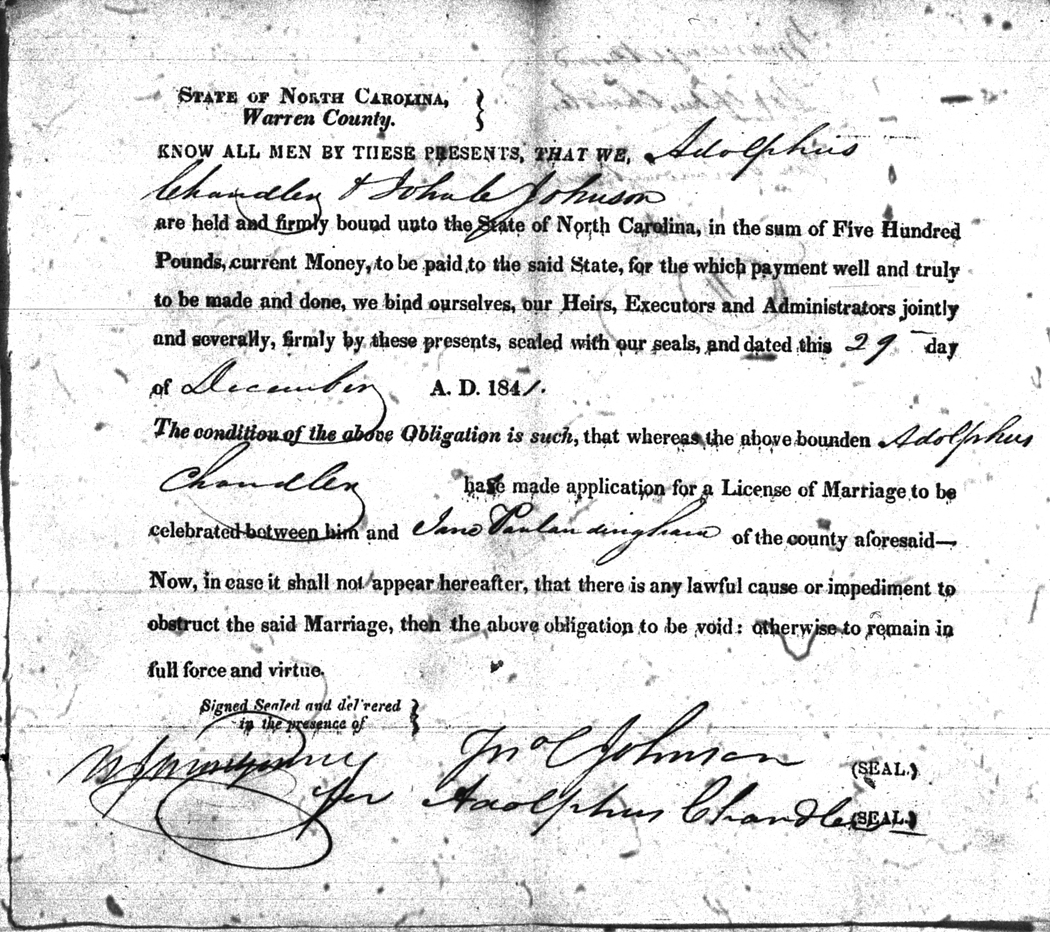 STATE OF NORTH CAROLINA,
Warren County.
KNOW ALL MEN BY THESE PRESENTS, THAT WE, Adolphus
Chandler & John C Johnson
are held and firmly bound unto the State of North Carolina, in the sum of Five Hundred
Pounds, current Money, to be paid to the said State, for the which payment well and truly
to be made and done, we bind ourselves, our Heirs, Executors and Administrators jointly
and severally, firmly by these presents, sealed with our seals, and dated this 29 day
of December A. D. 1841.
The condition of the above Obligation is such, that whereas the above bounden Adolphus
Chandler has made application for a License of Marriage to be
celebrated between him and Jane Vanlandingham of the county aforesaid—
Now, in case it shall not appear hereafter, that there is any lawful cause or impediment to
obstruct the said Marriage, then the above obligation to be void: otherwise to remain in
full force and virtue.
Signed Sealed and del'rered
in the presence of
Jno C Johnson (SEAL.)
for Adolphus Chandler (SEAL.)